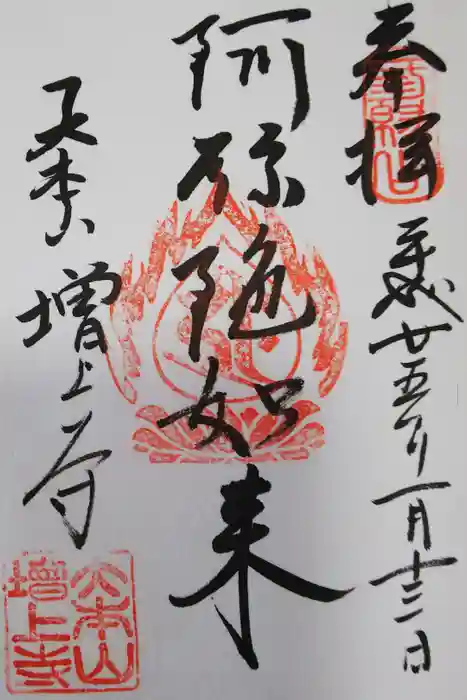 奉拝
平成廿五年一月十三日
阿弥陀如来
大本山
増上寺
大本山
増上寺